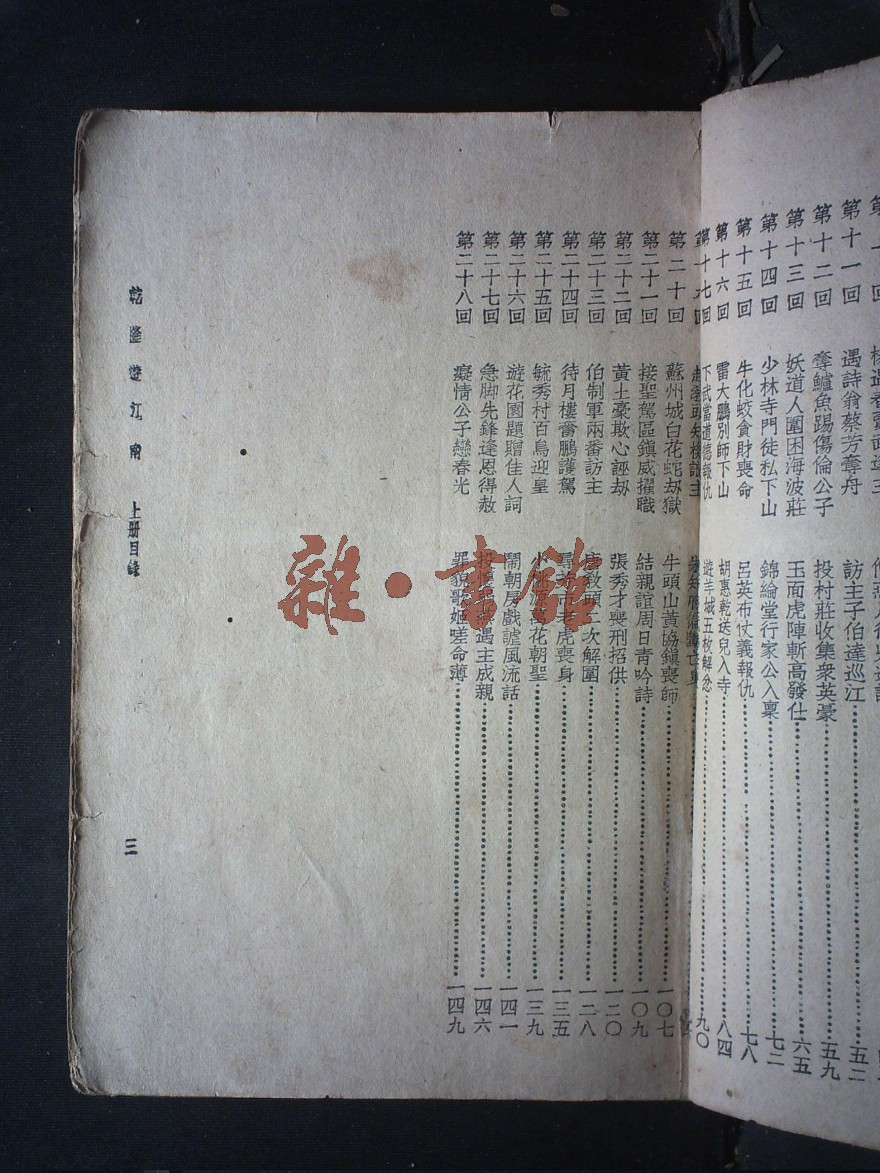 第十一回 遇詩翁蔡芳奪舟 訪主子伯達巡江 五二
第十二回 奪鱸魚踢傷倫公子 投村莊收集衆英豪 五九
第十三回 妖道人圍困海波莊 玉面虎陣斬高發仕 六五
第十四回 少林寺門徒私下山 錦綸堂行家公入稟 七二
第十五回 牛化蛟貪財喪命 呂英布仗義報仇 七八
第十六回 雷大鵬別師下山 胡惠乾送兒入寺 八四
第十七回 下武當道德報仇 遊羊城五枚解忿 九〇
第二十回 蘇州城白花蛇劫獄 牛頭山黃協鎮喪師 一〇七
第二十一回 接聖駕區鎮威擢職 結親誼周日青吟詩 一〇九
第二十二回 黃土豪欺心誣劫 張秀才喪刑招供 一二〇
第二十三回 伯制軍兩番訪主 唐敎頭二次解圍 一二八
第二十四回 待月樓奮鵬護駕 老虎喪身 一三五
第二十五回 毓秀村百鳥迎皇 小桃源萬花朝聖 一三九
第二十六回 遊花園題贈佳人詞 鬧朝房戲謔風流話 一四一
第二十七回 急脚先鋒逢恩得赦 投 遇主成親 一四六
第二十八回 癡情公子戀春光 貌歌姬嗟命薄 一四九
乾隆遊江南 上册目錄 三
雜·書館